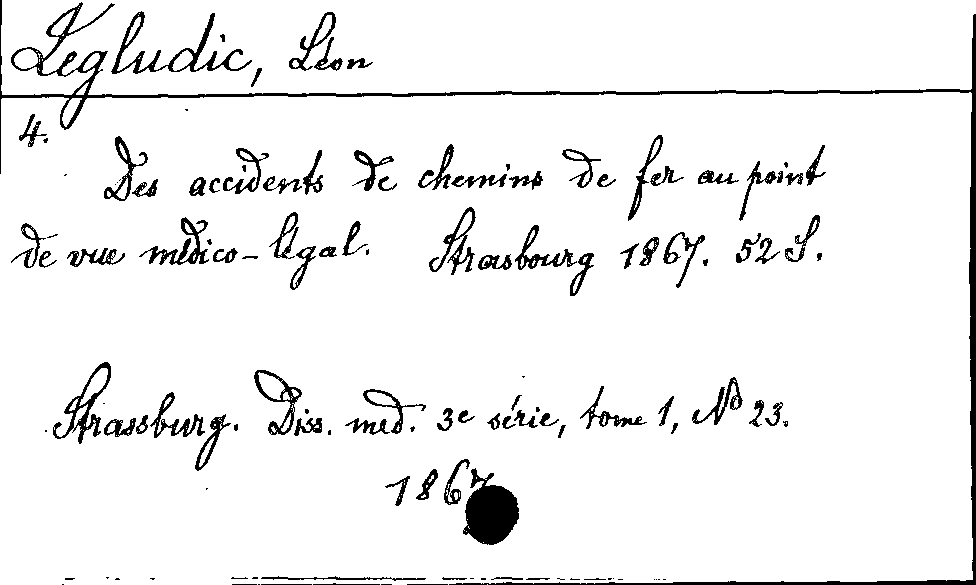 Legludic, Léon
4.
Des accidents de chemins de fer au point
de vue médico-légal. Strasbourg 1867. 52 S.
Strassburg. Diss. med. 3e série, tome 1, No 23.
1867